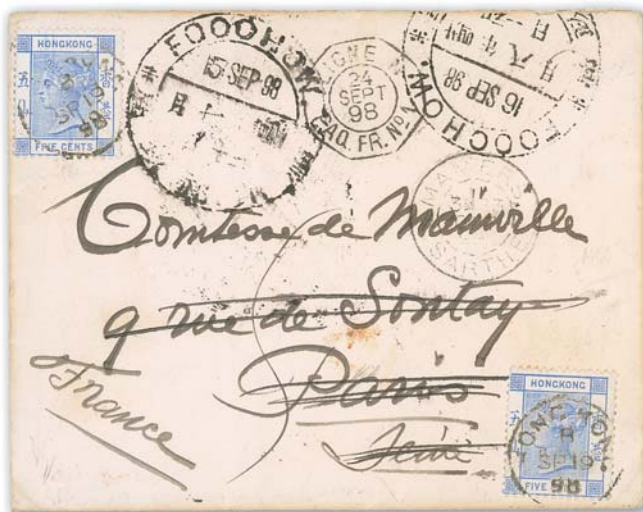 HONGKONG
FIVE CENTS
FOOCHOW
15 SEP 98
LIGNE N
24
SEPT
98
PAQ. FR. Nº 1
FOOCHOW
16 SEP 98
SARTHE
Comtesse de Mainville
9 rue de Sontay
Paris
Seine
France
HONGKONG
FIVE
B
SP 19
98